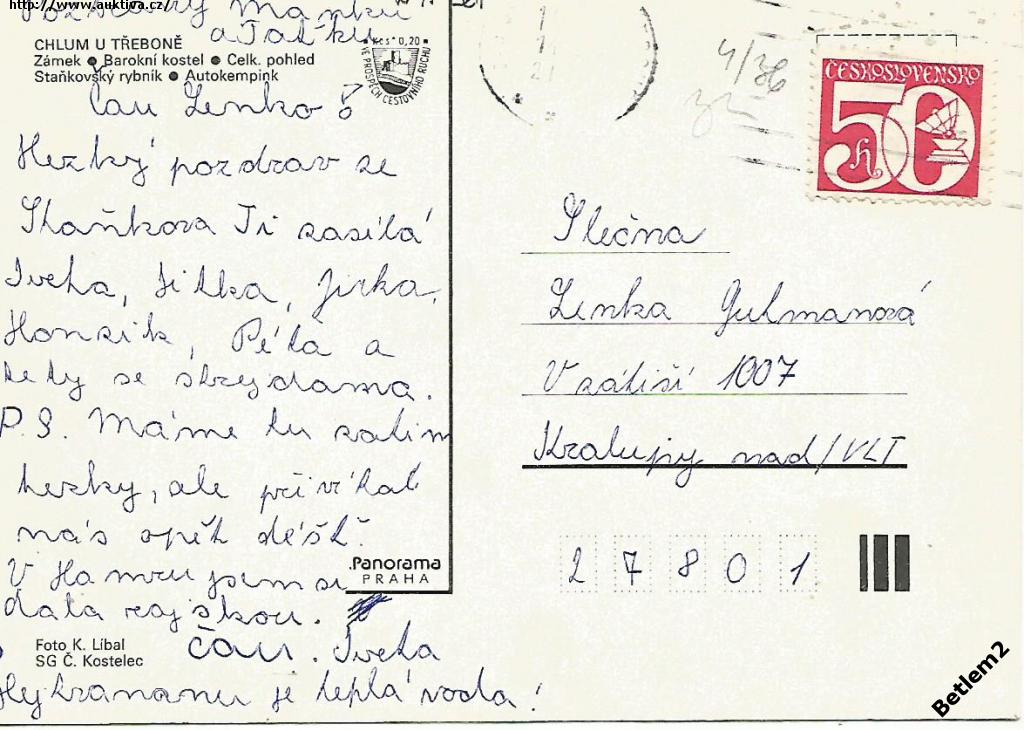 http://www.auktiva.cz/
Pozdravuj Mamku
a Taťku
CHLUM U TŘEBONĚ
Zámek ● Barokní kostel ● Celk. pohled
Staňkovský rybník ● Autokempink
Kčs 0,20
VE PROSPĚCH CESTOVNÍHO RUCHU
Čau Lenko
Hezký pozdrav ze
Staňkova Ti zasílá
Iveta, Jitka, Jirka,
Honzík, Péťa a
tety se strejdama.
P.S. Máme tu zatím
hezky, ale přivítal
nás opět déšť.
V Hamru jsem si
dala rajskou.
Čau. Iveta
je teplá voda!
Panorama
PRAHA
Foto K. Líbal
SG Č. Kostelec
4/86
ČESKOSLOVENSKO
50 h
Slečna
Lenka Gutmanová
V zátiší 1007
Kralupy nad/VLT
27801
Betlem2